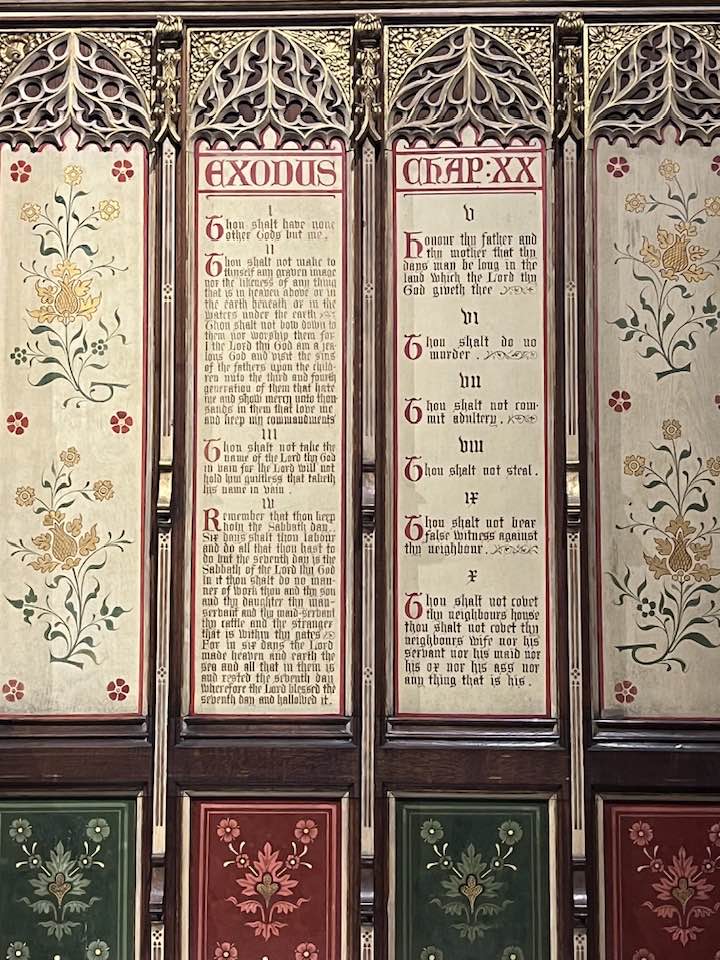 EXODUS
I
Thou shalt have none
other Gods but me.
II
Thou shalt not make to
thyself any graven image
nor the likeness of any thing
that is in heaven above or in
the earth beneath or in the
waters under the earth
Thou shalt not bow down to
them nor worship them for
I the Lord thy God am a jea-
lous God and visit the sins
of the fathers upon the child-
ren unto the third and fourth
generation of them that hate
me and show mercy unto thou-
sands in them that love me
and keep my commandments
III
Thou shalt not take the
name of the Lord thy God
in vain for the Lord will not
hold him guiltless that taketh
his name in vain.
IV
Remember that thou keep
holy the Sabbath day..
Six days shalt thou labour
and do all that thou hast to
do but the seventh day is the
Sabbath of the Lord thy God
In it thou shalt do no man-
ner of work thou and thy son
and thy daughter thy man-
servant and thy maid-servant
thy cattle and the stranger
that is within thy gates
For in six days the Lord
made heaven and earth the
sea and all that in them is
and rested the seventh day
wherefore the Lord blessed the
seventh day and hallowed it.
CHAP:XX
V
Honour thy father and
thy mother that thy
days may be long in the
land which the Lord thy
God giveth thee
VI
Thou shalt do no
murder.
VII
Thou shalt not com-
mit adultery.
VIII
Thou shalt not steal.
IX
Thou shalt not bear
false witness against
thy neighbour.
X
Thou shalt not covet
thy neighbours house
thou shalt not covet thy
neighbours wife nor his
servant nor his maid nor
his ox nor his ass nor
any thing that is his.